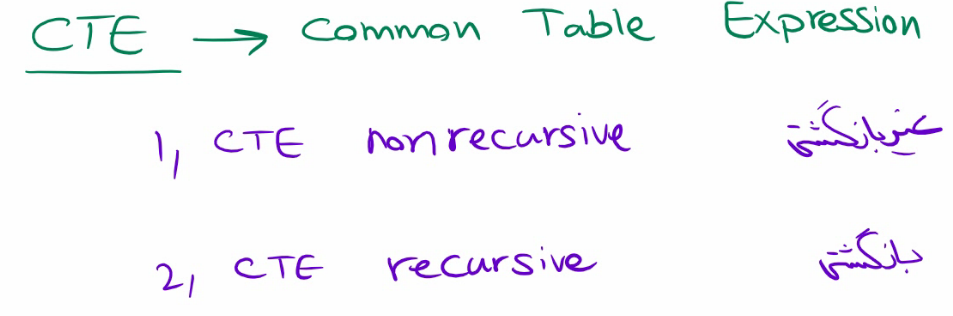 CTE → Common Table Expression
1, CTE nonrecursive غیر بازگشتی
2, CTE recursive بازگشتی